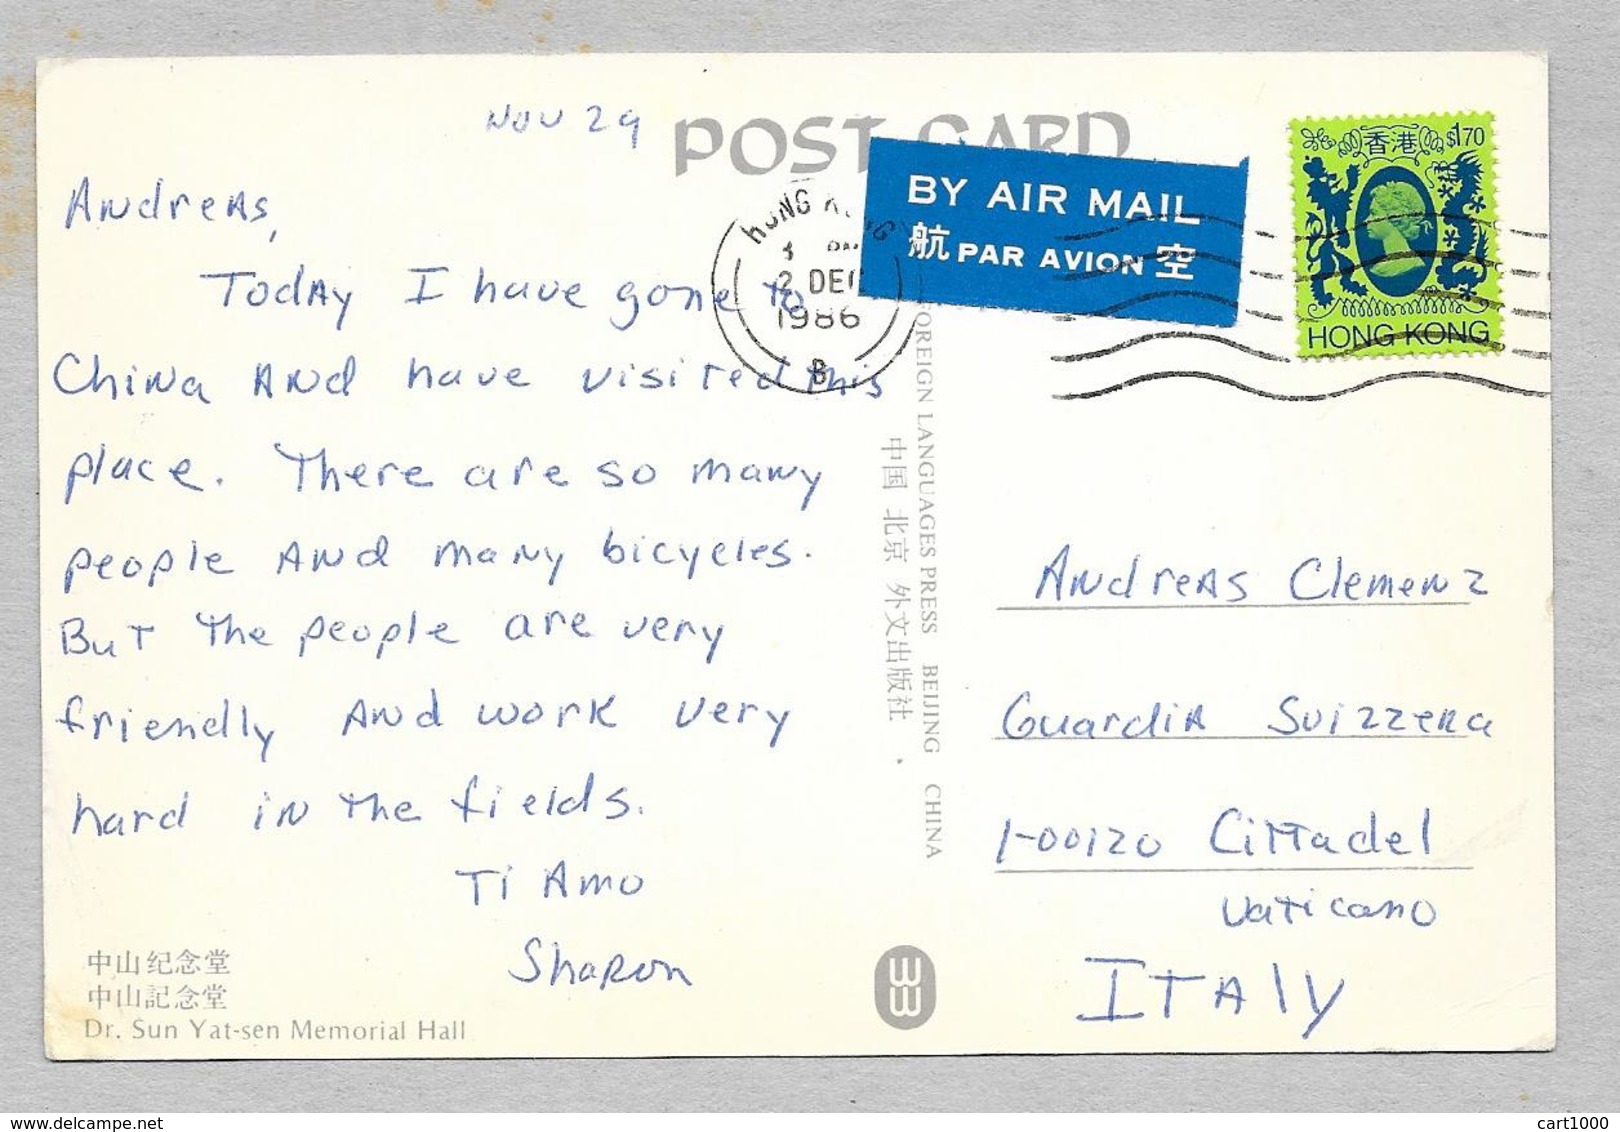 NOV 29
POST CARD
Andreas,
Today I have gone to
China and have visited this
place. There are so many
people and many bicycles.
But the people are very
friendly and work very
hard in the fields.
Ti Amo
Sharon
中山纪念堂
中山記念堂
Dr. Sun Yat-sen Memorial Hall
HONG KONG
2 DEC
1986
B
BY AIR MAIL
航 PAR AVION 空
香港 $1.70
HONG KONG
FOREIGN LANGUAGES PRESS BEIJING CHINA
中国 北京 外文出版社
Andreas Clemenz
Guardia Svizzera
I-00120 Cittadel
Vaticano
ITALY
cart1000